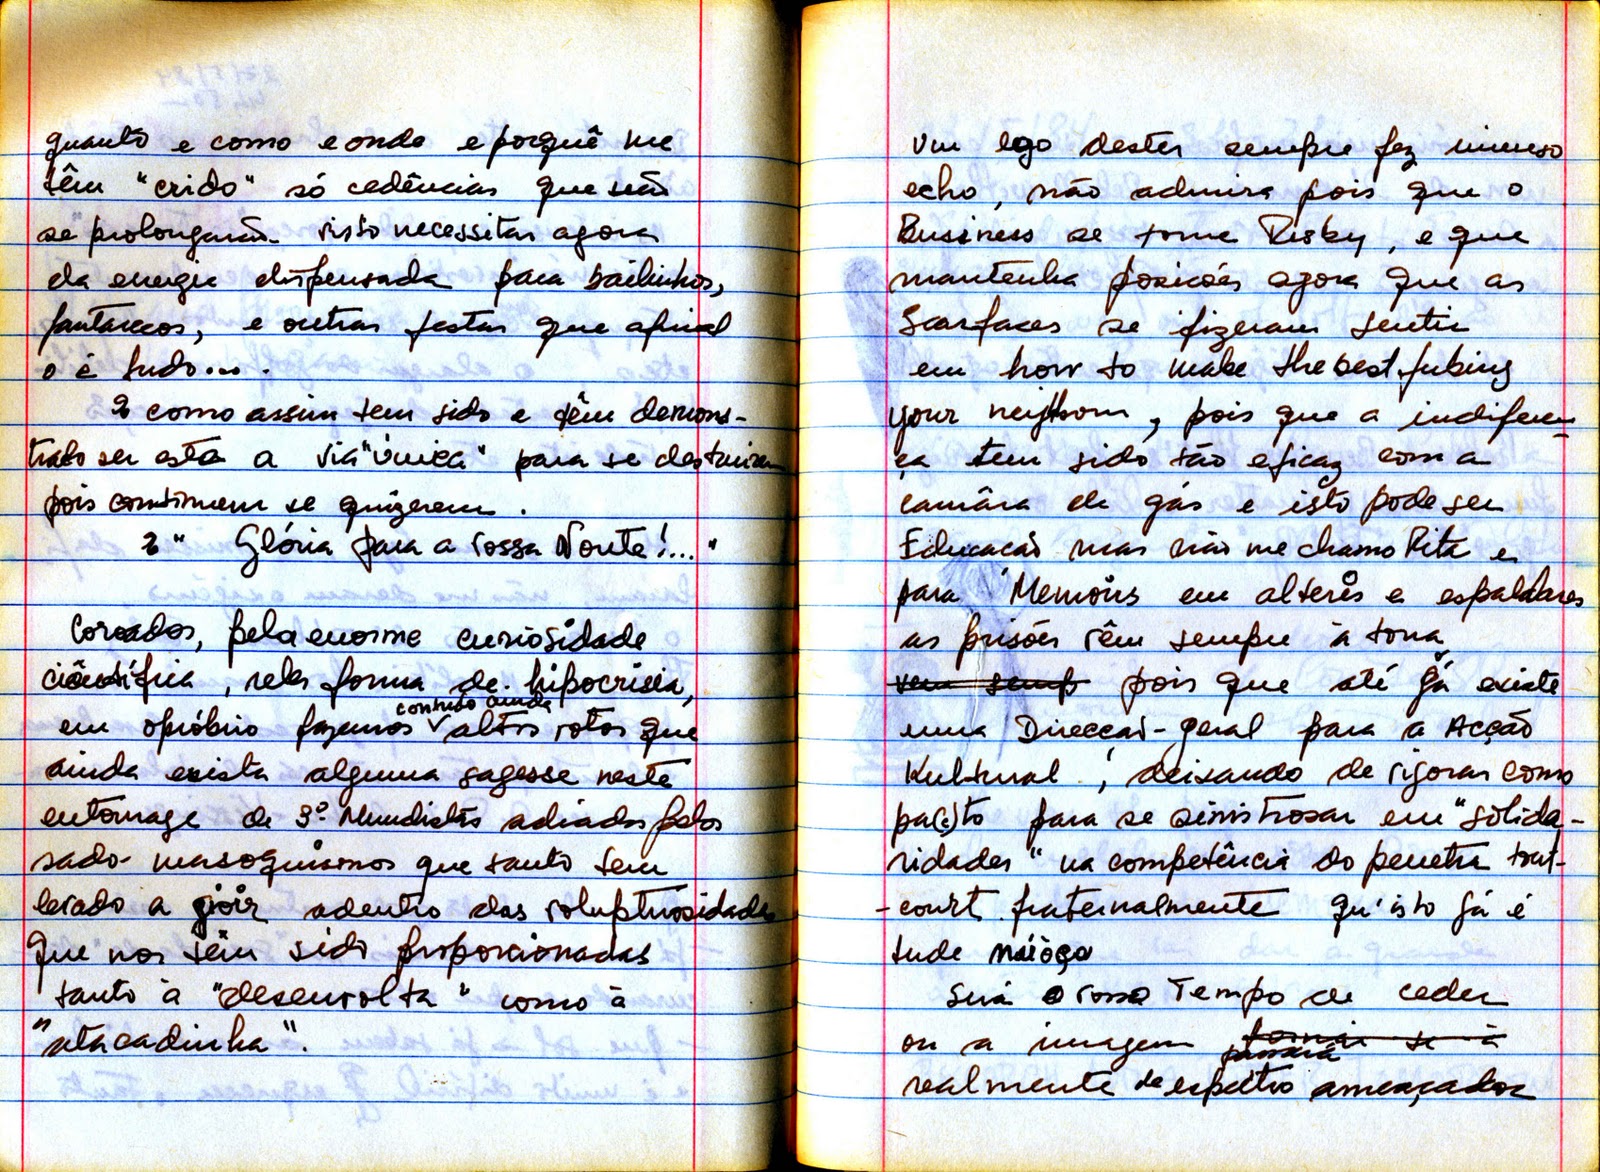 quanto e como e onde e porquê me
têm "crido" só cedências que não
se prolongarão. visto necessitar agora
da energia dispensada para bailinhos,
fantarecos, e outras festas que afinal
o é tudo....
E como assim tem sido e têm demons-
trado ser esta a via "única" para se destruirem
pois continuem se quizerem.
E "Glória para a vossa Morte!..."
Coroados, pela enorme curiosidade
ciêntífica, reles forma de hipocrisia,
em opróbrio fazemos contudo ainda altos votos que
ainda exista alguma sagesse neste
entourage de 3º Mundistas adiados pelos
sado-masoquismos que tanto tem
levado a gioir adentro das voluptuosidades
que nos têm sido proporcionadas
tanto à "desenvolta" como à
"atacadinha".
Um ego destes sempre fez imenso
echo, não admira pois que o
Business se torne Risky, e que
mantenha posicões agora que as
Scarfaces se fizeram sentir
em how to make the best fubing
your neighbour, pois que a indiferen
ça tem sido tão eficaz com a
camâra de gás e isto pode ser
Educacão mas não me chamo Rita e
para Memoirs em alteres e espaldares
as prisões vêm sempre à tona,
vem semp pois que até já existe
uma Direccão-geral para a Acção
Kultural, deixando de vigorar como
pa(c)to para se sinistrosar em "solida-
ridades" na competência do penetra tout-
-court fraternalmente qu'isto já é
tude máiòga
Será o vosso Tempo de ceder
ou a imagem tornar se à passará
realmente de espectro ameaçador